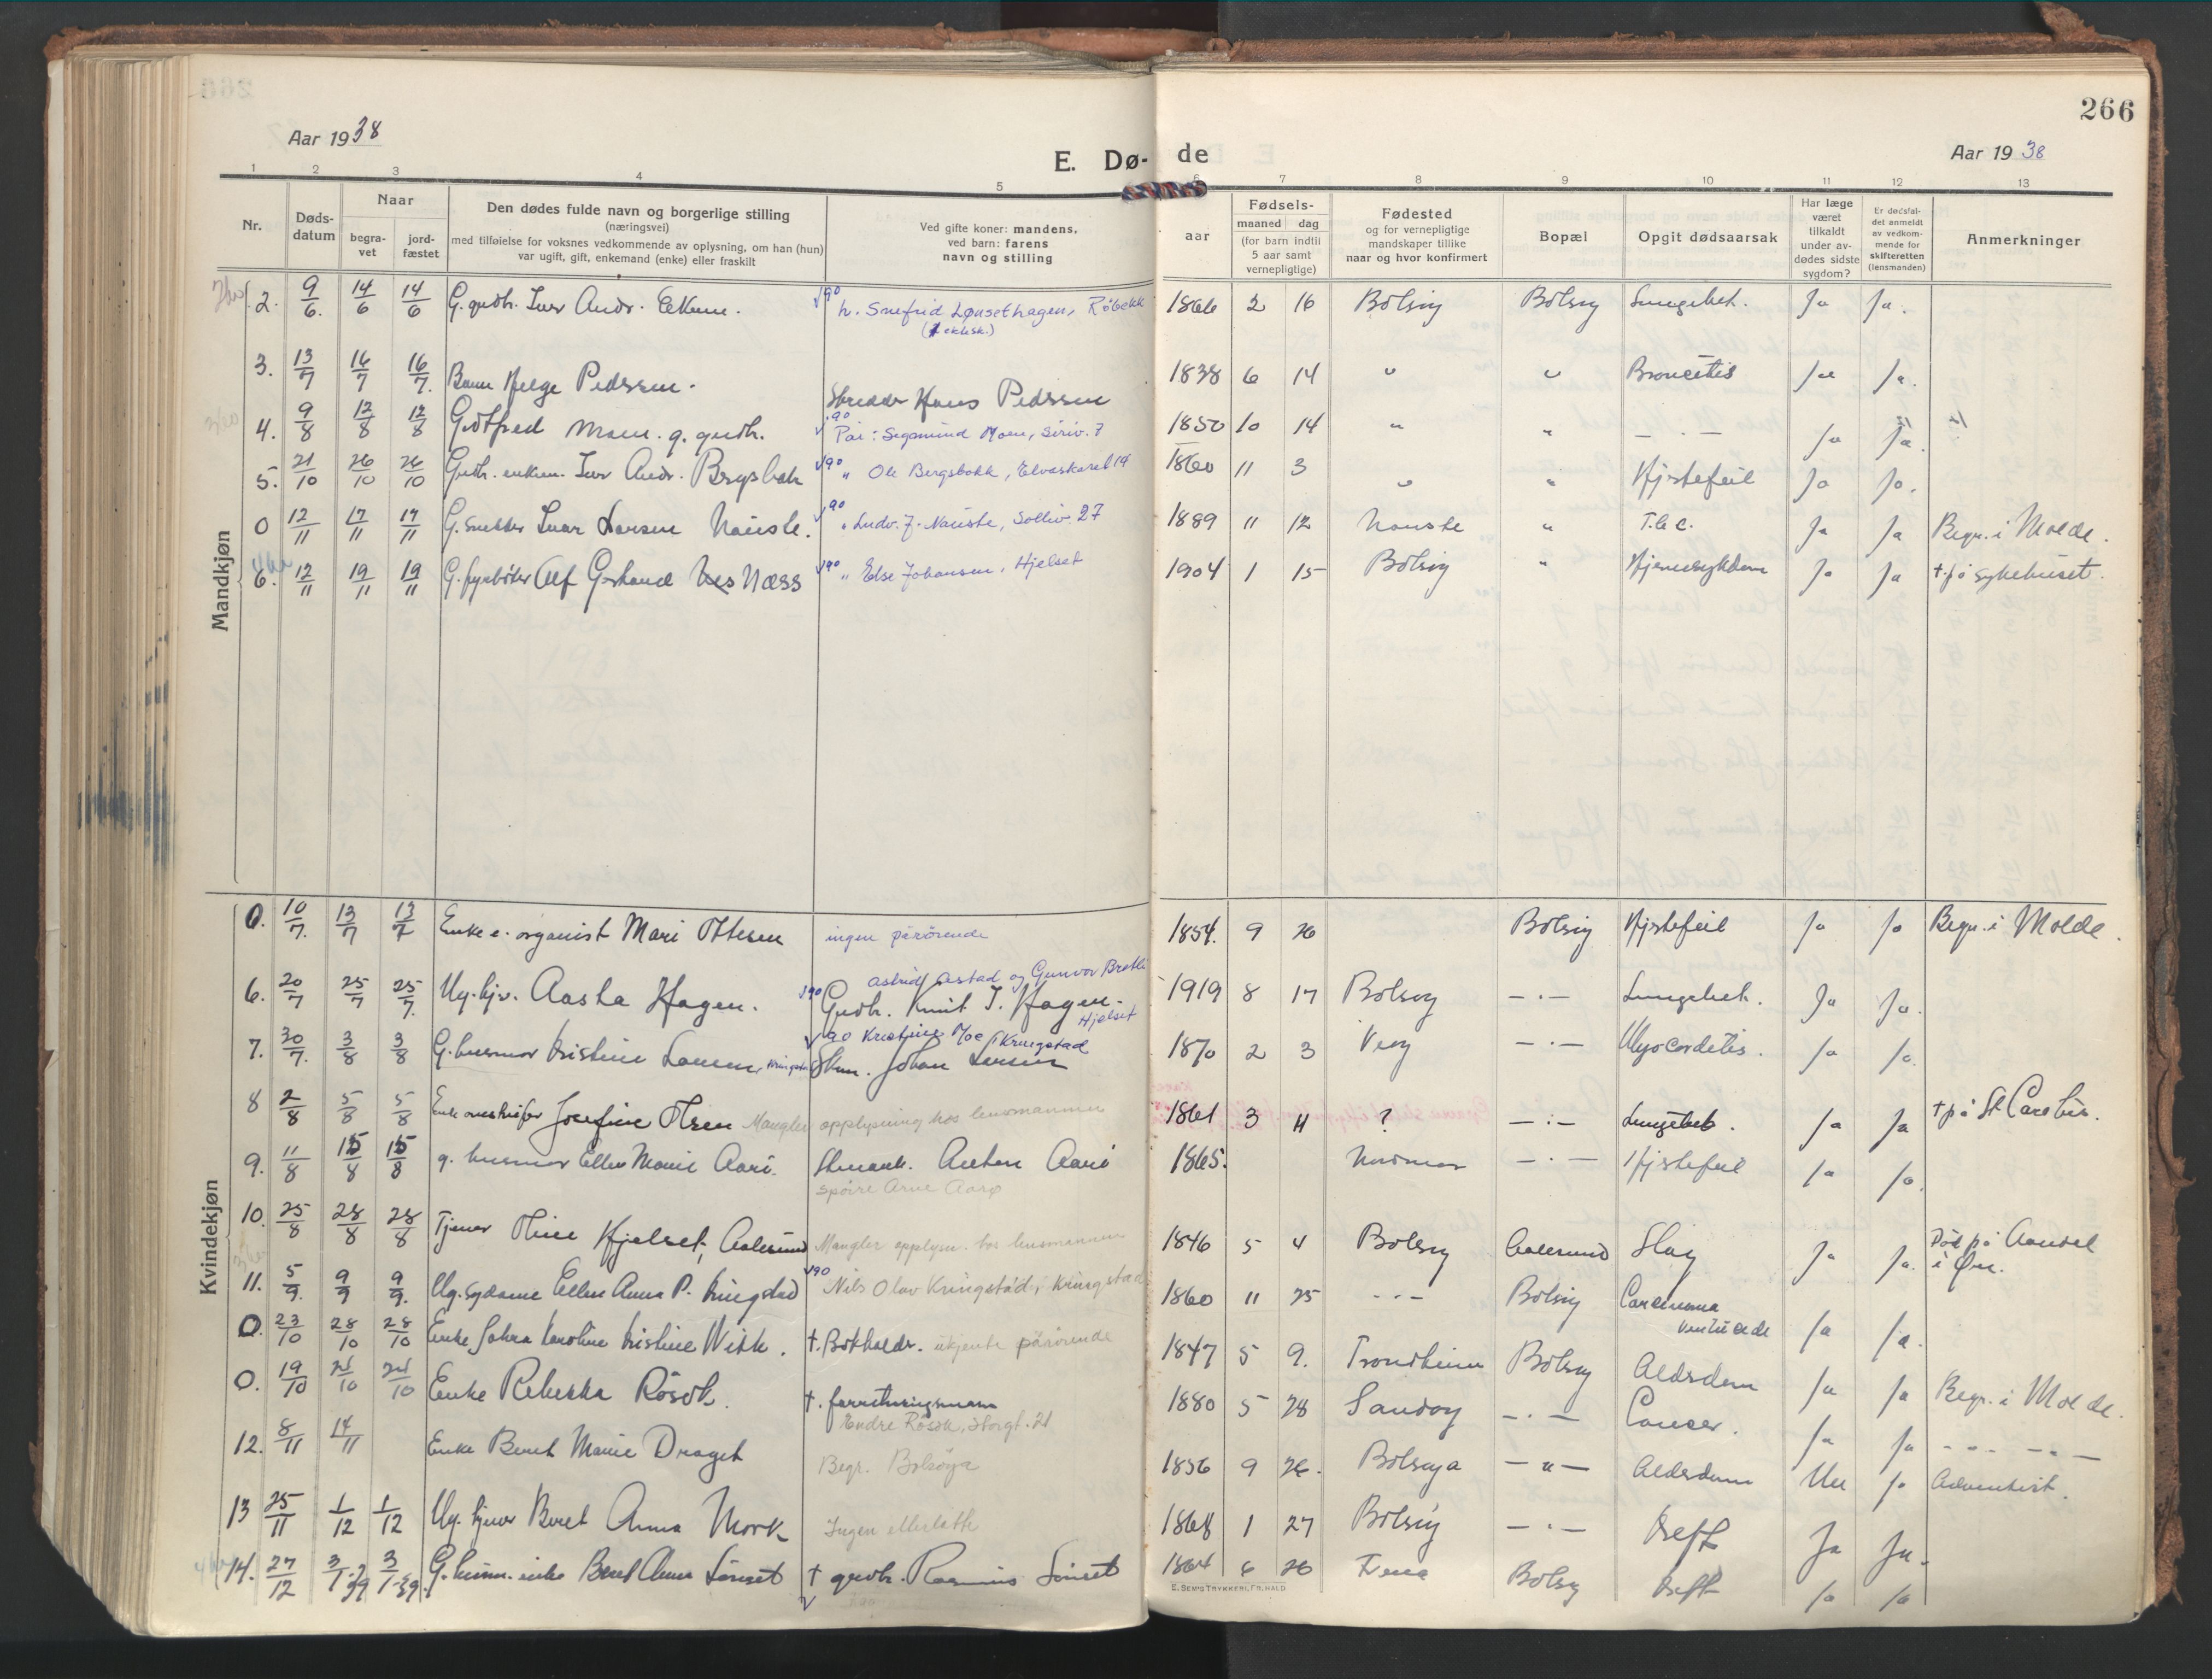 266
Aar 1938
E. Dø-de
Aar 1938
1 2 3 4 5 6 7 8 9 10 11 12 13
Nr.
Døds-
datum
Naar
begra-
vet
jord-
fæstet
Den dødes fulde navn og borgerlige stilling
(næringsvei)
med tilføielse for voksnes vedkommende av oplysning, om han (hun)
var ugift, gift, enkemand (enke) eller fraskilt
Ved gifte koner: mandens,
ved barn: farens
navn og stilling
Fødsels-
aar
maaned dag
(for barn indtil
5 aar samt
vernepligtige)
Fødested
og for vernepligtige
mandskaper tillike
naar og hvor konfirmert
Bopæl
Opgit dødsaarsak
Har læge
været
tilkaldt
under av-
dødes sidste
sygdom?
Er dødsfal-
det anmeldt
av vedkom-
mende for
skifteretten
(lensmanden)
Anmerkninger
Mandkjøn
2. 9/6. 14/6 14/6 G. gudbr. Iver Andr. Eikrem. h. Snefrid Lønsethagen, Røbekk 1866 2 16 Bolsøy Bolsøy Lungebet. Ja Ja.
3. 13/7 16/7 16/7. Barn Helge Pedersen. Skredder Hans Pedersen 1938 6 14 " " Broncitis Ja Ja.
4. 9/8 12/8 12/8 Gotfred Moen. g. gudbr. Pår: Segmund Moen, Siriv. 7 1850 10 14 " " — . — Ja Ja.
5. 21/10 26/10 26/10 Gudbr. enkem. Iver Andr. Bergsbak " Ole Bergsbakk, Elvaskaret 19 1860 11 3 " " Hjertefeil Ja Ja.
0 12/11 17/11 17/11 G. snekker Ivar Larsen Nauste. " Ludv. J. Nauste, Solliv. 27 1889 11 12 Nauste " T.b.c. Ja Ja Begr. i Molde.
6. 12/11 19/11 19/11 G. fyrbøter Alf Gerhard Nes Næss " Else Johansen, Hjelset 1904 1 15 Bolsøy " Hjernesykdom Ja Ja † på sykehuset.
Kvindekjøn
0. 10/7. 13/7 13/7 Enke e. organist Mari Ottesen ingen pårørende 1854. 9 26 Bolsøy Hjertefeil Ja Ja Begr. i Molde.
Astrid Aastad og Gunvor Bratli
6. 20/7 25/7 25/7. Ug. hjv. Aasta Hagen. Gudbr. Knut T. Hagen. Hjelset 1919 8 17 Bolsøy — . — Lungebet. Ja Ja.
Kristine Moe, Kringstad
7. 30/7. 3/8 3/8 G. husmor Kristine Larsen, Kringstad Johan Larsen 1870 2 3 Veøy — . — Myocarditis. Ja Ja.
8 2/8 5/8 5/8 Josefine Olsen Mangler opplysning hos lensmannen 1861 3 4 ? — . — Lungebet. Ja Ja † på St. Carolus.
9. 11/8 15/8 15/8 g. husmor Ellen Marie Aarø. Anton Aarø 1865. Nordmør — . — Hjertefeil Ja Ja.
spørre Arne Aarø
10. 25/8 28/8 28/8 Tjener Oline Hjelset, Aalesund Mangler opplysn. hos lensmannen 1846 5 4 Bolsøy Aalesund Slag Ja Ja. Død på
11. 5/9. 9/9 9/9. Ug. sydame Ellen Anna P. Kringstad Nils Olav Kringstad, Kringstad 1860 11 25 - . - Bolsøy Carcinoma ventriculi Ja Ja.
0. 23/10 28/10 28/10 Enke Karoline Kristine Witk. †. Bokholder. ukjente pårørende 1847 5 9. Trondheim Bolsøy Aldersdom Ja Ja Begr. i Molde.
0. 19/10 24/10 24/10 Enke Rebekka Røsok. †. forretningsmann 1880 5 28 Sandøy — . — Cancer. Ja Ja - . - - . -
Endre Røsok, Storgt. 21
12. 8/11 14/11 Enke Beret Marie Draget Begr. Bolsøya 1856 9 26. Bolsøya — " — Aldersdom Nei Ja Adventist.
13 25/11 1/12 1/12 Ug. tjener Beret Anna Mork Ingen etterlatte 1868 1 27 Bolsøy — . — Kreft Ja Ja.
14. 27/12 3/1-39 3/1-39. Beret Anna Lønset † gudbr. Rasmus Lønset 1864 6 26 Fræna Bolsøy Kreft Ja Ja
E. SEM'S TRYKKERI, FR.HALD